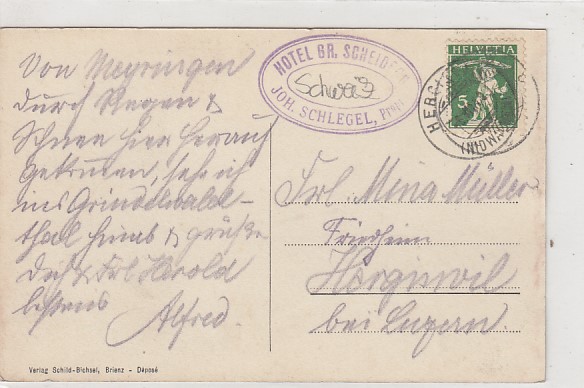 Von Meyringen
durch Regen &
Schnee hier herauf
gekommen, sehe ich
ins Grindelwald-
thal hinab & grüße
Dich & Frl Harold
bestens
Alfred.
HOTEL GR. SCHEIDEGG
Schweiz
JOH. SCHLEGEL, Propr
HELVETIA
5
HERGI
(NIDWALD
Frl. Mina Müller
Friedheim
Hergiswil
bei Luzern.
Verlag Schild-Bichsel, Brienz - Déposé